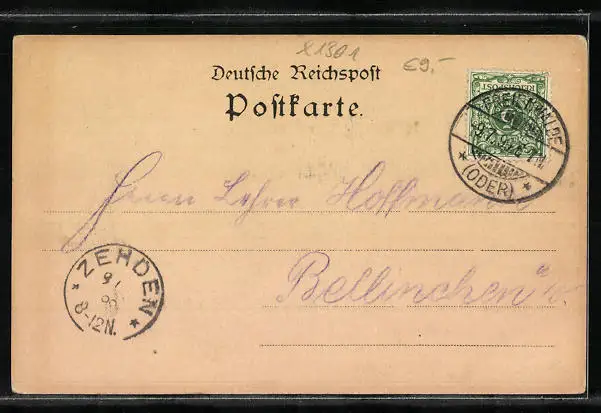 x1301
€9.-
Deutsche Reichspost
Postkarte.
REICHSPOST
5
FREIENWALDE
* (ODER) *
Herrn Lehrer Hoffmann
Bellinchen
* ZEHDEN *
9/
8-12N.